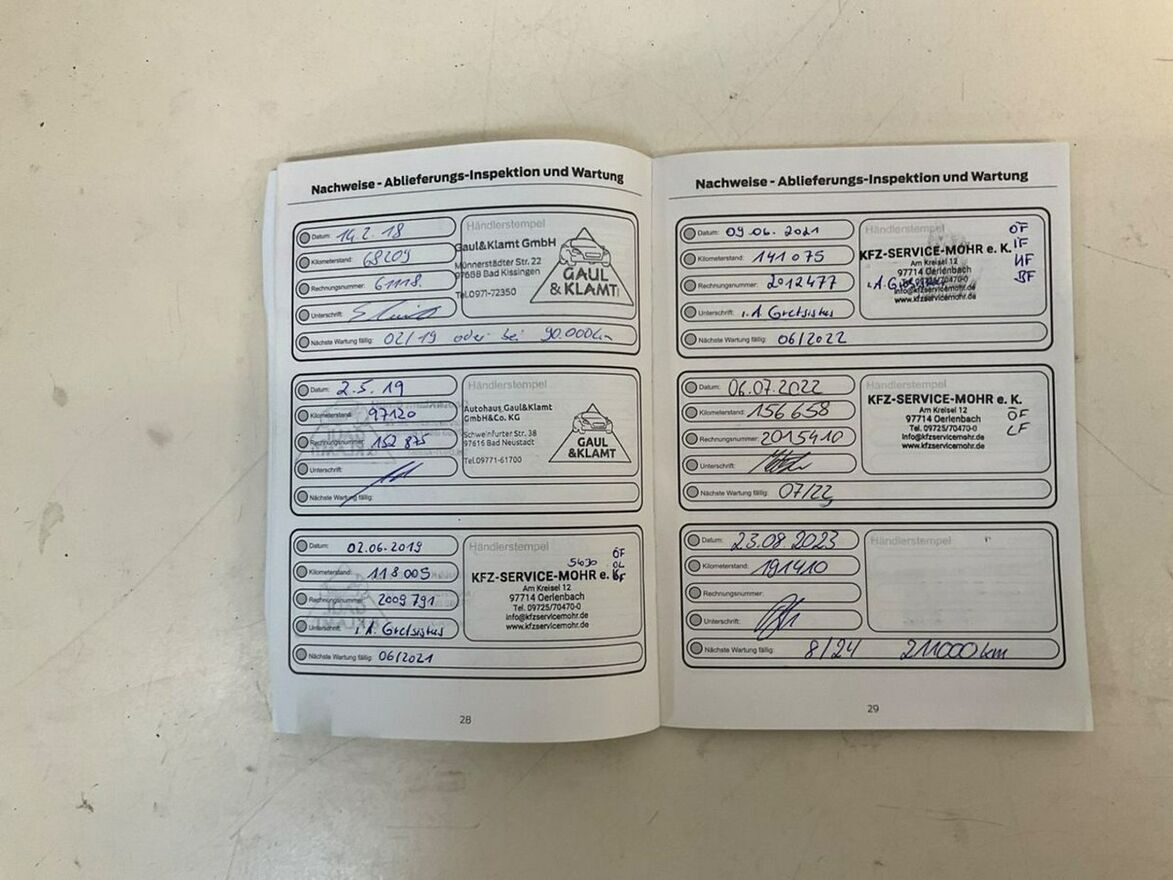 Nachweise - Ablieferungs-Inspektion und Wartung
Datum: 14.2.18
Kilometerstand: 68209
Rechnungsnummer: 61118
Unterschrift:
Nächste Wartung fällig: 02/19 oder bei 90.000km
Händlerstempel
Gaul&Klamt GmbH
Münnerstädter Str. 22
97688 Bad Kissingen
Tel.0971-72350
GAUL
& KLAMT
Datum: 2.5.19
Kilometerstand: 97120
Rechnungsnummer: 152875
Unterschrift:
Nächste Wartung fällig:
Händlerstempel
Autohaus Gaul&Klamt
GmbH&Co. KG
Schweinfurter Str. 38
97615 Bad Neustadt
Tel.09771-61700
GAUL
&KLAMT
Datum: 02.06.2019
Kilometerstand: 118005
Rechnungsnummer: 2009791
Unterschrift: i.A.
Nächste Wartung fällig: 06/2021
Händlerstempel
5W30
ÖF
OL
KFZ-SERVICE-MOHR e. K.
Am Kreisel 12
97714 Oerlenbach
Tel. 09725/70470-0
info@kfzservicemohr.de
www.kfzservicemohr.de
28
Nachweise - Ablieferungs-Inspektion und Wartung
Datum: 09.06.2021
Kilometerstand: 141075
Rechnungsnummer: 2012477
Unterschrift: i.A.
Nächste Wartung fällig: 06/2022
Händlerstempel
ÖF
IF
KFZ-SERVICE-MOHR e. K.
Am Kreisel 12
97714 Oerlenbach
BF
info@kfzservicemohr.de
www.kfzservicemohr.de
Datum: 06.07.2022
Kilometerstand: 156658
Rechnungsnummer: 2015410
Unterschrift:
Nächste Wartung fällig: 07/22
Händlerstempel
KFZ-SERVICE-MOHR e. K.
Am Kreisel 12
97714 Oerlenbach
Tel. 09725/70470-0
info@kfzservicemohr.de
www.kfzservicemohr.de
ÖF
LF
Datum: 23.08.2023
Kilometerstand: 191410
Rechnungsnummer:
Unterschrift:
Nächste Wartung fällig: 8/24 211000 km
Händlerstempel
29